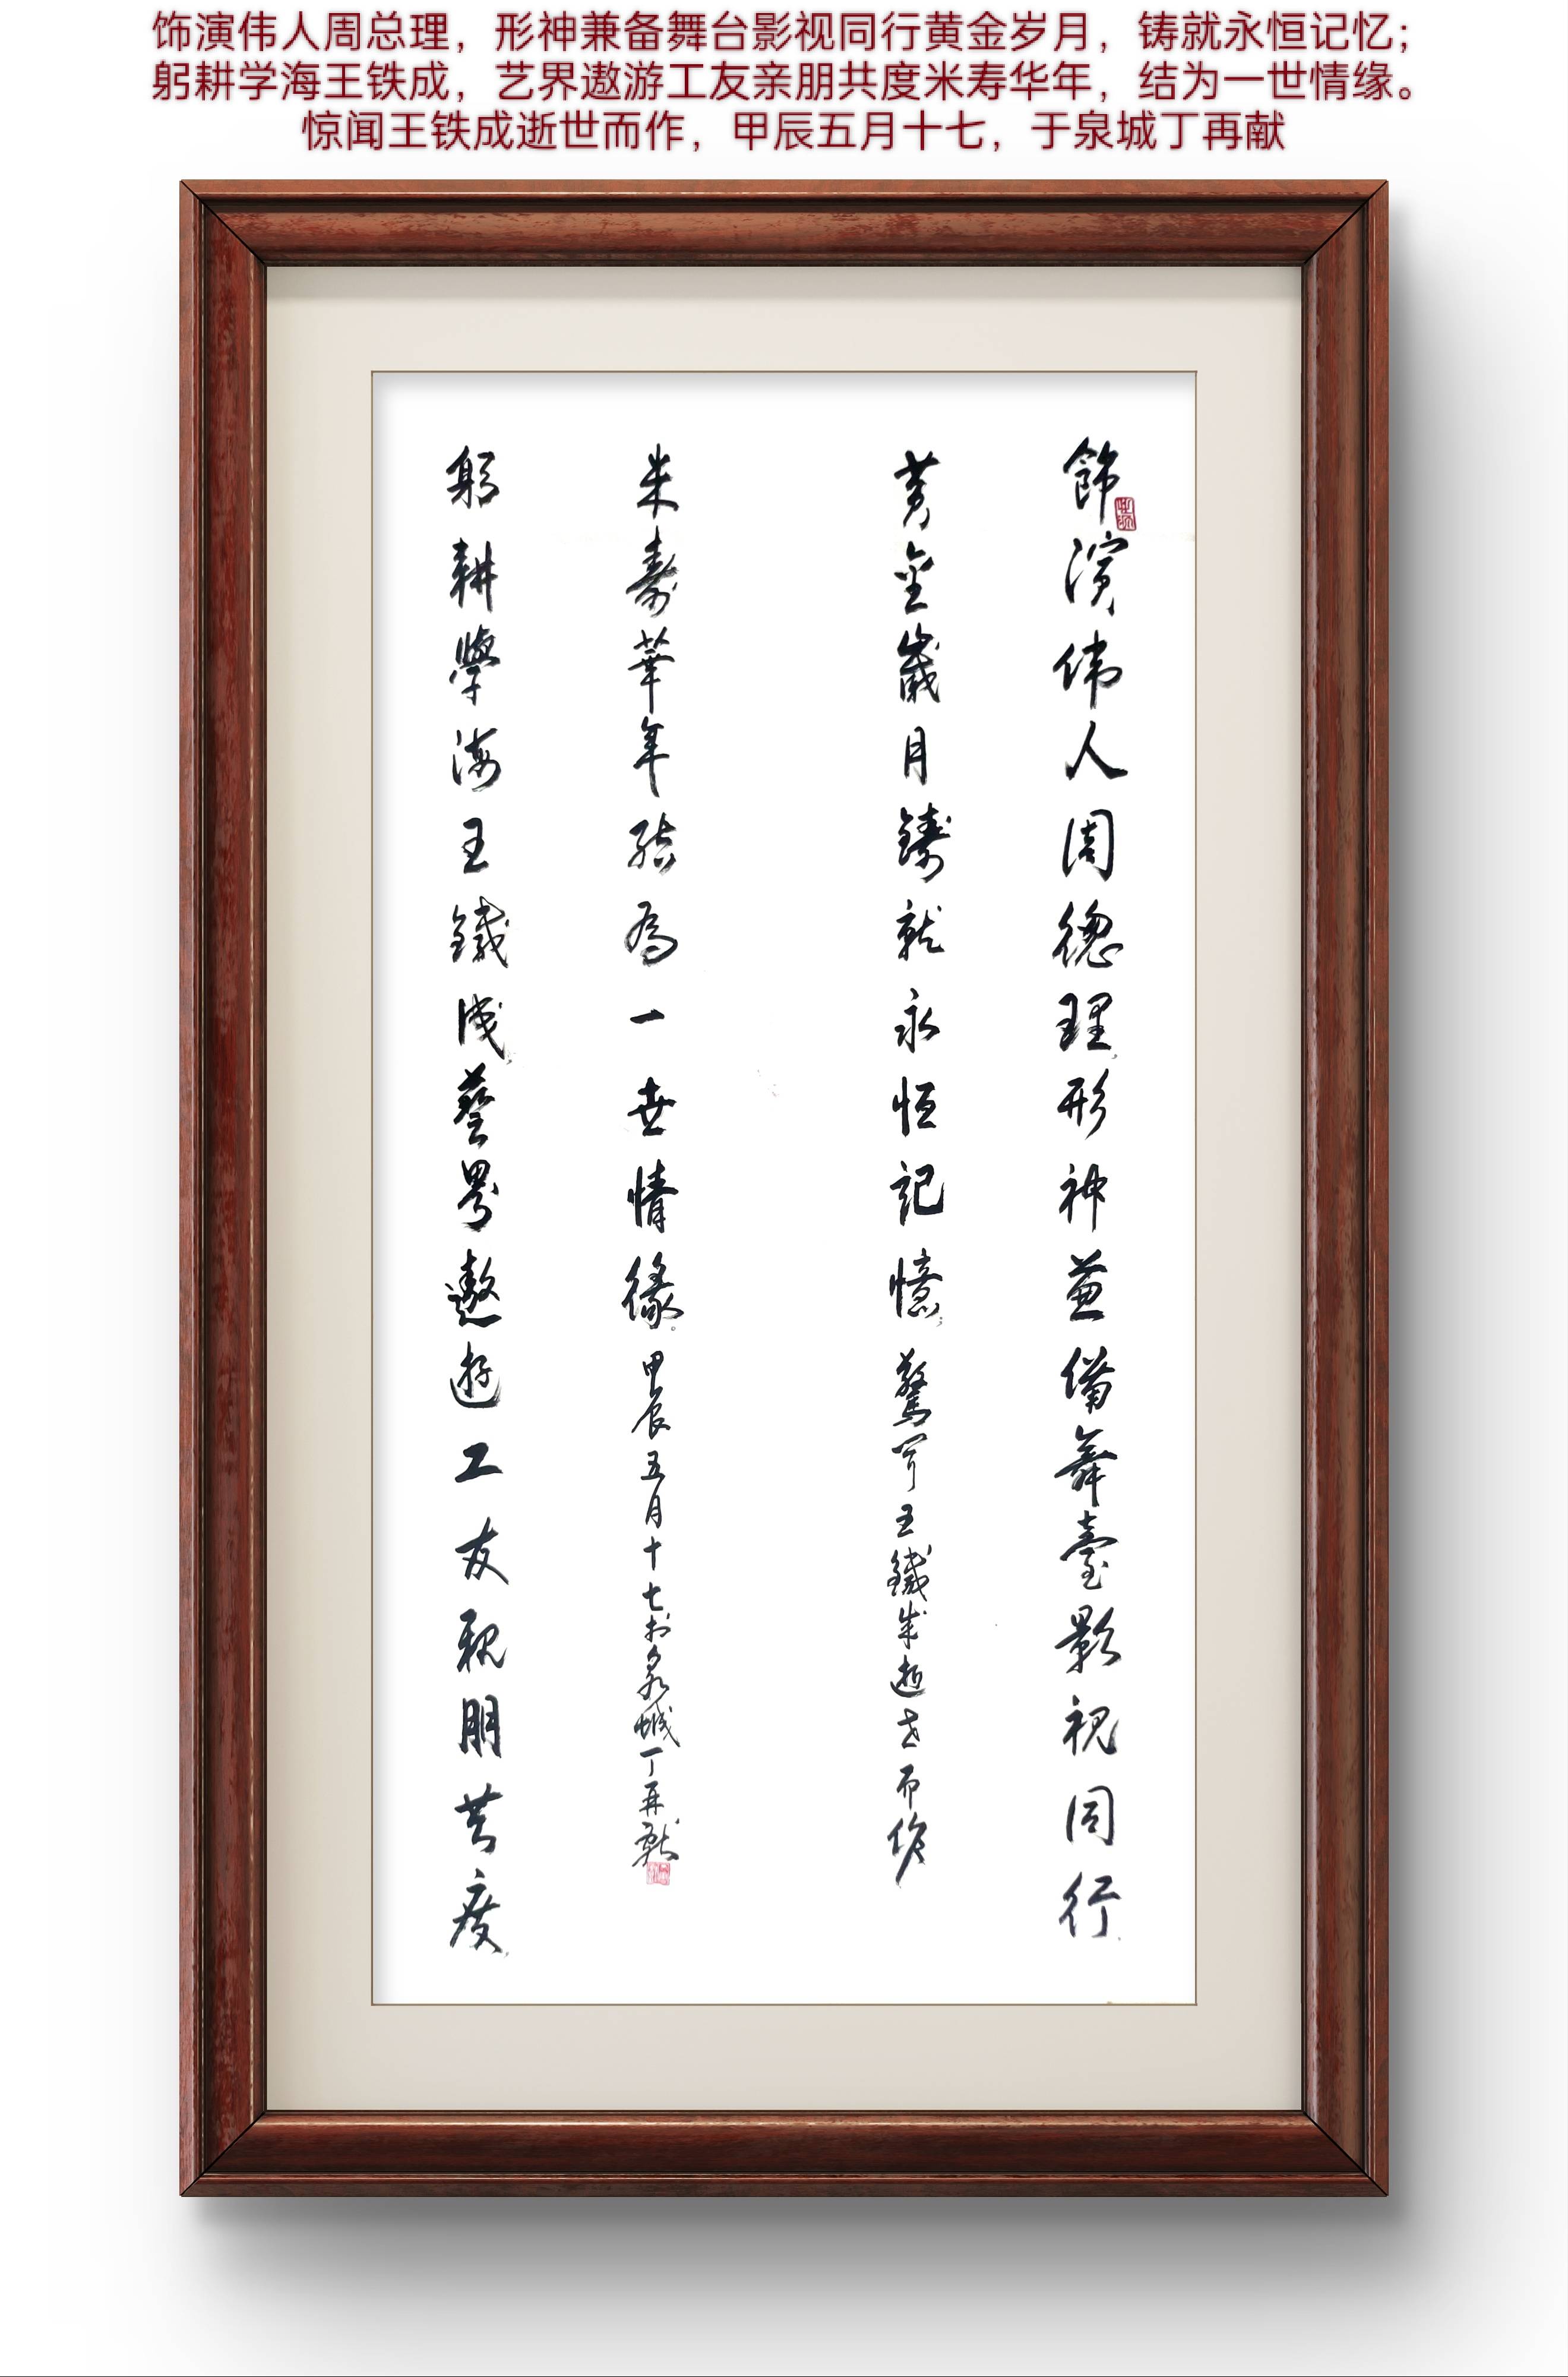 饰演伟人周总理，形神兼备舞台影视同行黄金岁月，铸就永恒记忆；
躬耕学海王铁成，艺界遨游工友亲朋共度米寿华年，结为一世情缘。
惊闻王铁成逝世而作，甲辰五月十七，于泉城丁再献
飾演偉人周總理，形神兼備舞臺影視同行
黄金歲月鑄就永恒記憶；驚聞王鐵成逝世而作
躬耕學海王鐵成，藝界遨遊工友親朋共度
米壽華年結為一世情緣。甲辰五月十七於泉城丁再獻